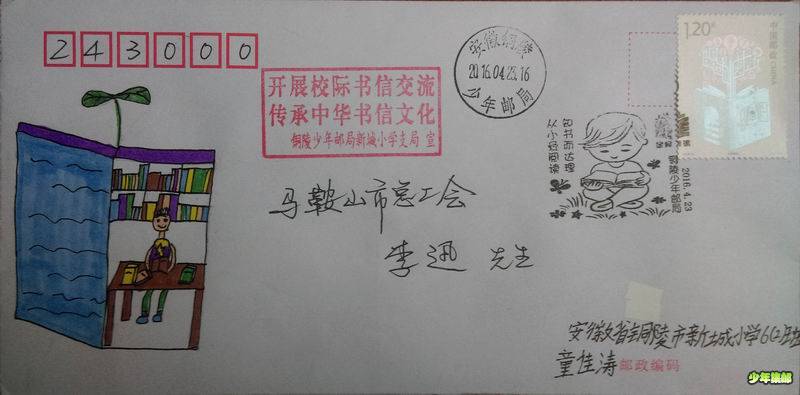 243000
开展校际书信交流
传承中华书信文化
铜陵少年邮局新城小学支局 宣
安徽铜陵
2016.04.23.16
少年邮局
1.20元
中国邮政 CHINA
知书而达理
从小须阅读
2016.4.23
铜陵少年邮局
马鞍山市总工会
李迅 先生
安徽省铜陵市新城小学6(2)班
童佳涛
邮政编码
少年集邮